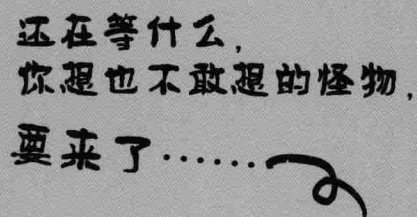 还在等什么，
你想也不敢想的怪物，
要来了······